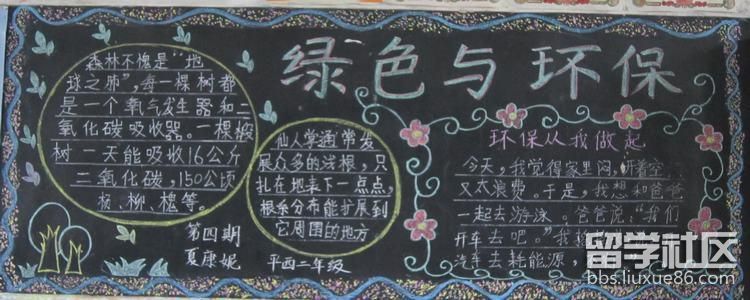 绿色与环保
森林不愧是“地
球之肺”,每一棵树都
是一个氧气发生器和二
氧化碳吸收器。一棵
树一天能吸收16公斤
二氧化碳,150公顷
杨、柳、槐等。
第四期
夏康妮
仙人掌通常发
展众多的浅根,只
扎在地表下一点点,
根系分布能扩展到
它周围的地方
平西二年级
环保从我做起
今天,我觉得家里闷,开着空
又太浪费。于是,我想和爸爸
一起去游泳。爸爸说:“我们
开车去吧。”我
汽车去耗能源,
留学社区
bbs.liuxue86.com